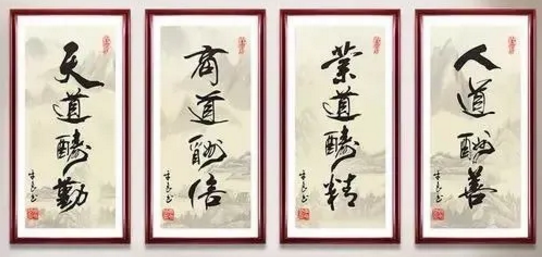 天道酬勤
商道酬信
業道酬精
人道酬善